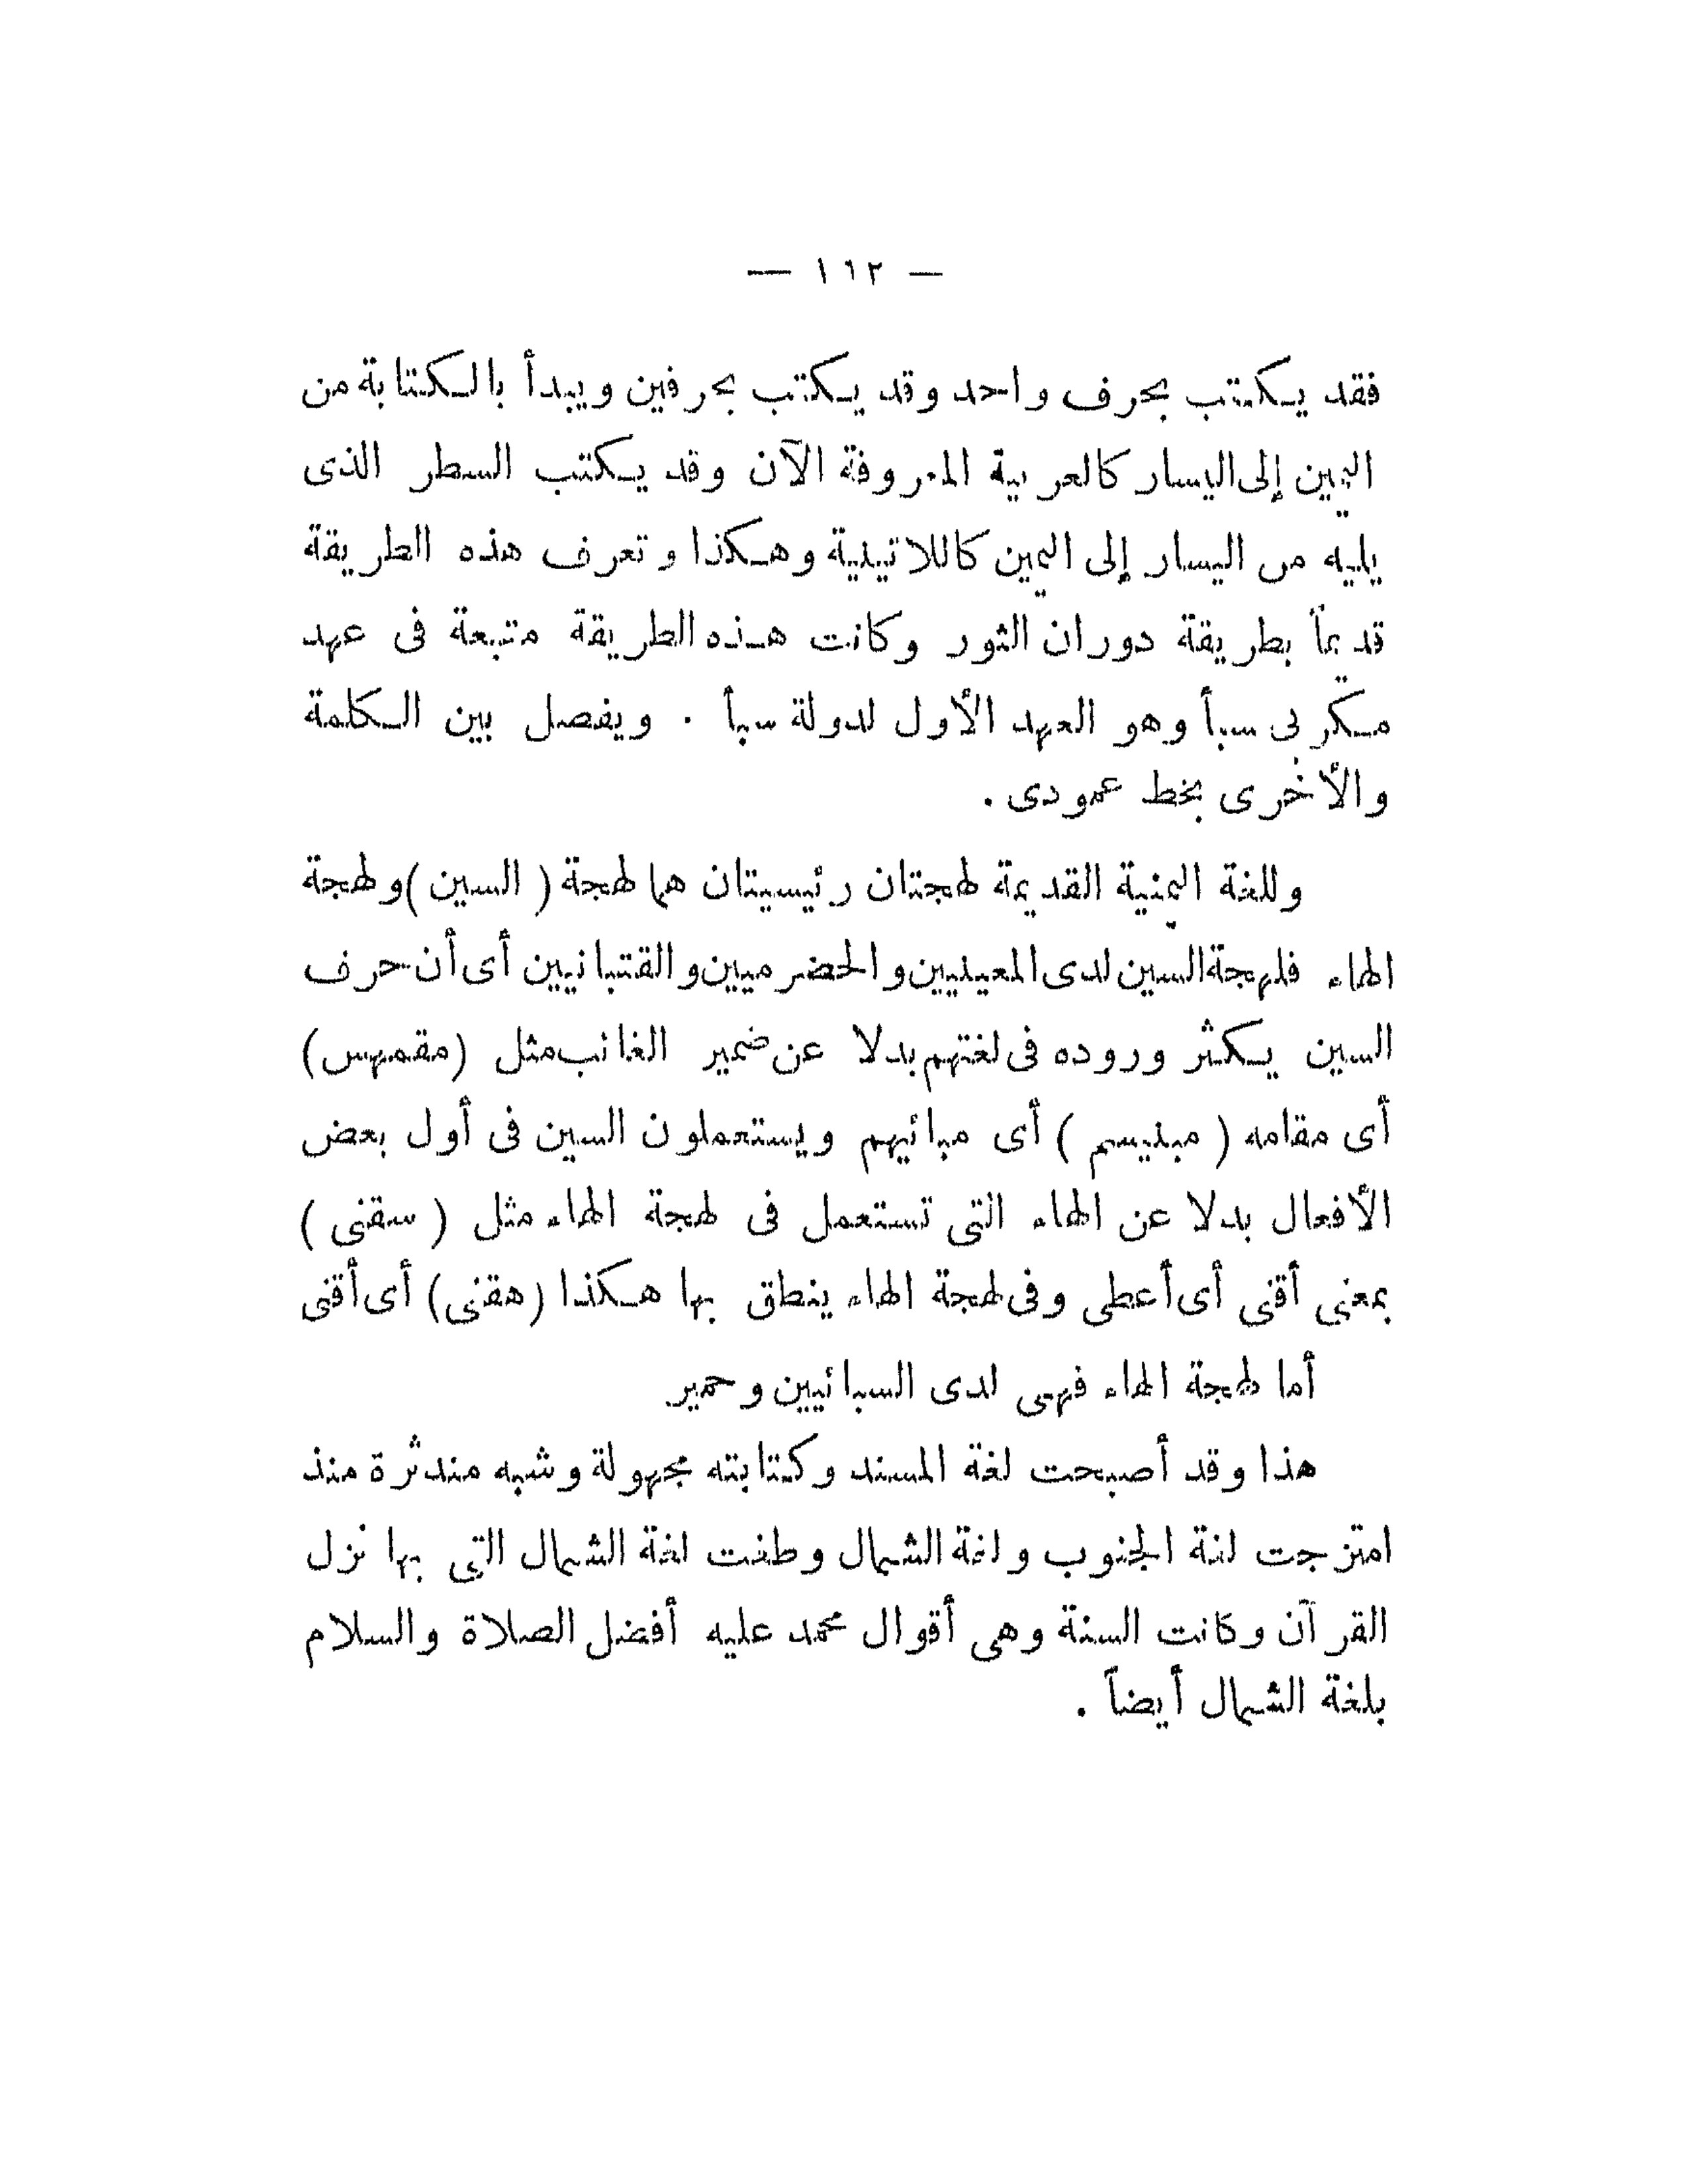 — ١٦٢ —
فقد يكتب بحرف واحد وقد يكتب بحرفين ويبدأ بالكتابة من
اليمين إلى اليسار كالعربية المعروفة الآن وقد يكتب السطر الذى
يليه من اليسار إلى اليمين كاللاتينية وهكذا وتعرف هذه الطريقة
قديماً بطريقة دوران الثور وكانت هذه الطريقة متبعة فى عهد
مكربى سبأ وهو العهد الأول لدولة سبأ . ويفصل بين الكلمة
والأخرى بخط عمودى .
وللغة اليمنية القديمة لهجتان رئيسيتان هما لهجة ( السين ) ولهجة
الهاء فلهجة السين لدى المعينيين والحضرميين والقتبانيين أى أن حرف
السين يكثر وروده فى لغتهم بدلا عن ضمير الغائب مثل (مقمهس)
أى مقامه ( مبنيسم ) أى مبانيهم ويستعملون السين فى أول بعض
الأفعال بدلا عن الهاء التى تستعمل فى لهجة الهاء مثل ( سقنى )
بمعنى أقنى أى أعطى وفى لهجة الهاء ينطق بها هكذا (هقنى) أى أقنى
أما لهجة الهاء فهى لدى السبائيين وحمير
هذا وقد أصبحت لغة المسند وكتابته مجهولة وشبه مندثرة منذ
امتزجت لغة الجنوب ولغة الشمال وطغت لغة الشمال التى بها نزل
القرآن وكانت السنة وهى أقوال محمد عليه أفضل الصلاة والسلام
بلغة الشمال أيضاً .